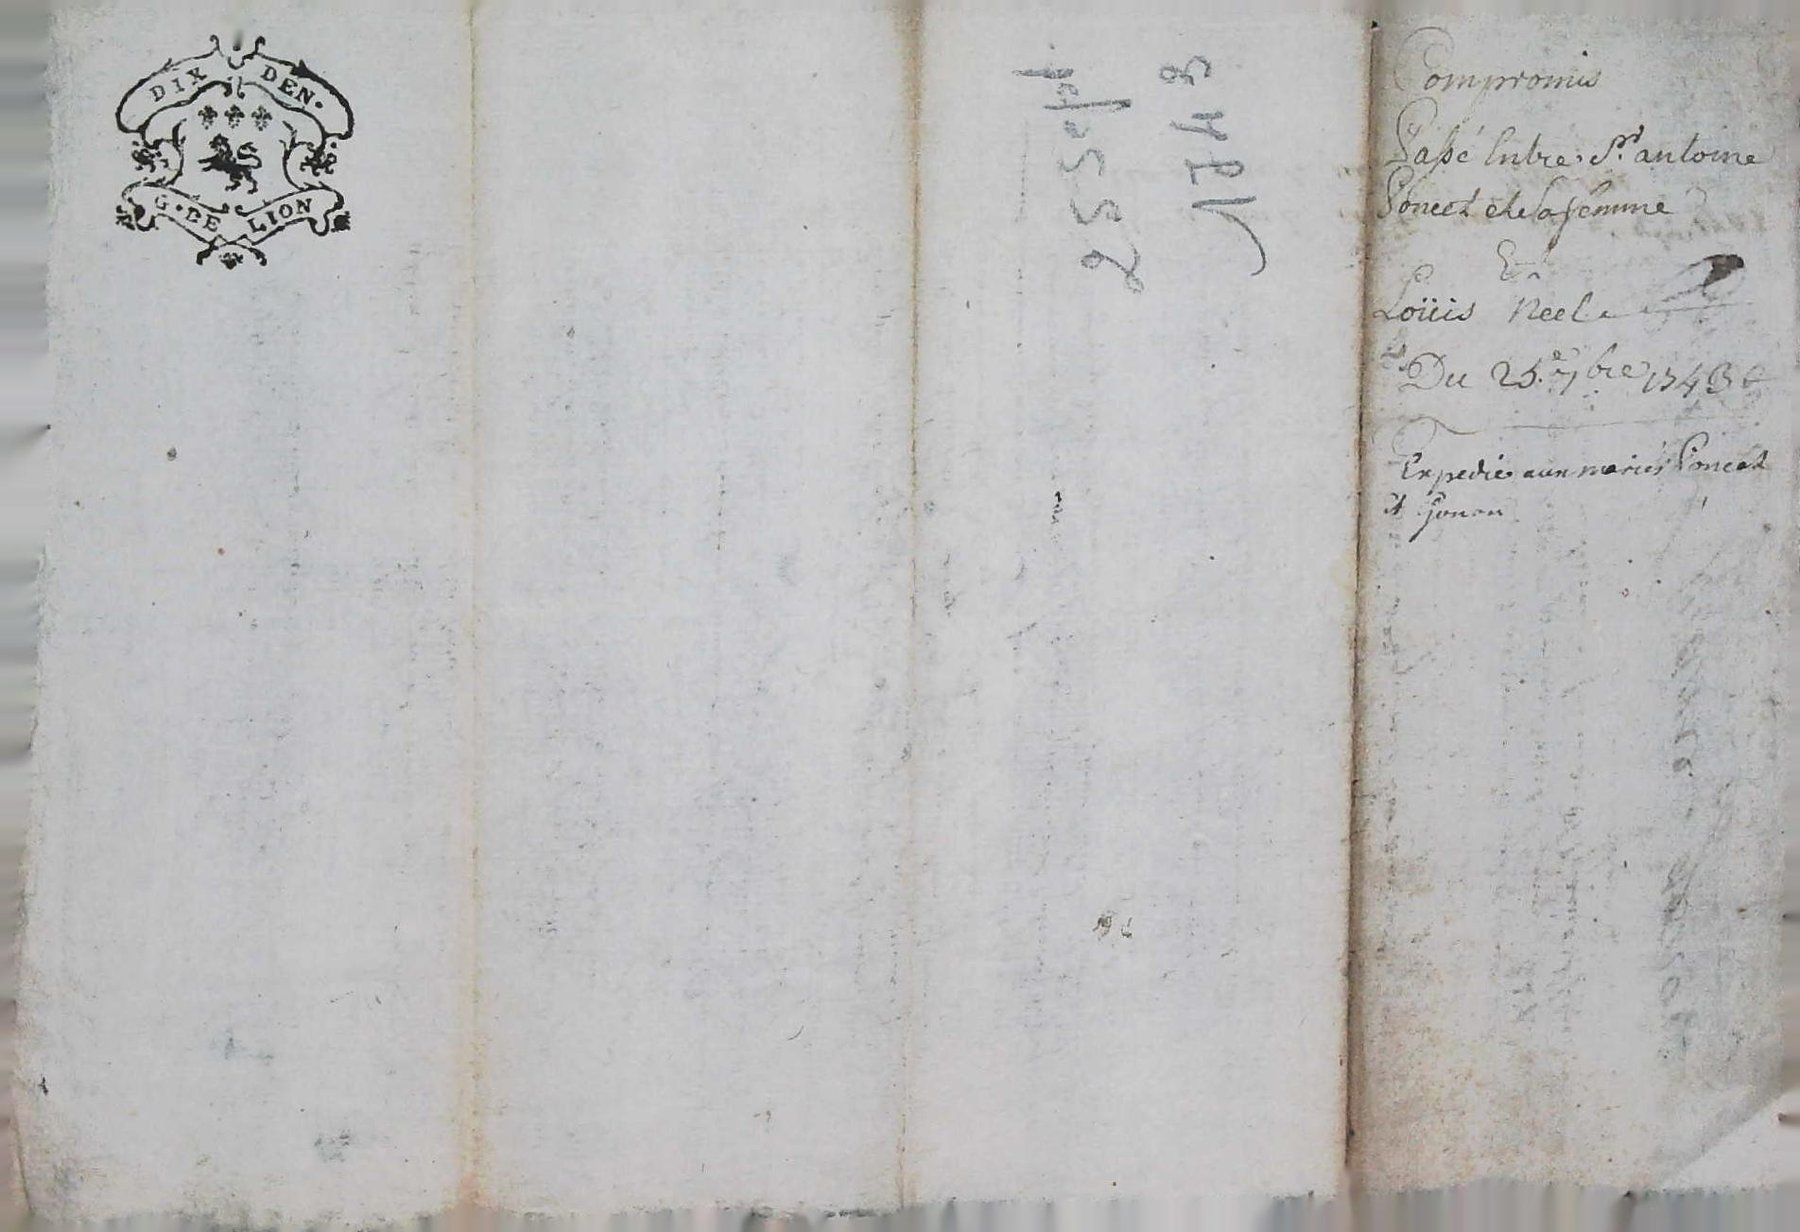 DIX DEN.
G. DE LION
25 Sept.
1743
Compromis
Passé Entre Sr. antoine
Poncet et sa femme
Et
Loüis Neel
Du 25.e 7bre 1743
Expedié aux mariés Poncet
et